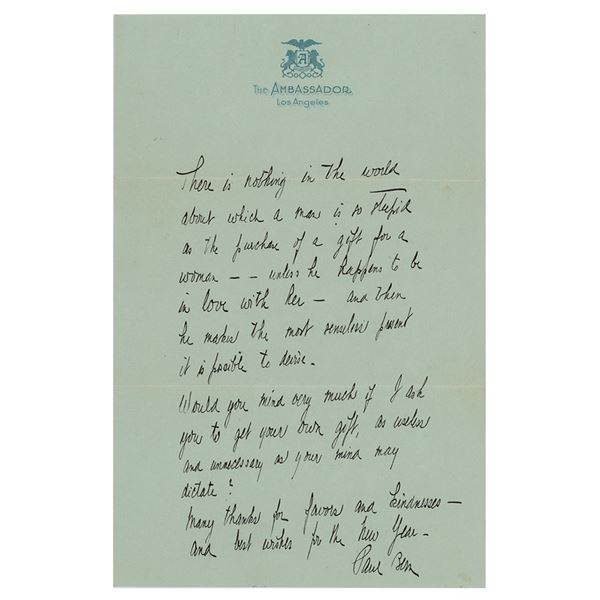 A
The AMBASSADOR
Los Angeles
There is nothing in the world
about which a man is so stupid
as the purchase of a gift for a
woman -- unless he happens to be
in love with her - and then
he makes the most senseless present
it is possible to devise.
Would you mind very much if I ask
you to get your own gift, as useless
and unnecessary as your mind may
dictate?
Many thanks for favors and kindnesses -
and best wishes for the New Year -
Paul Bern